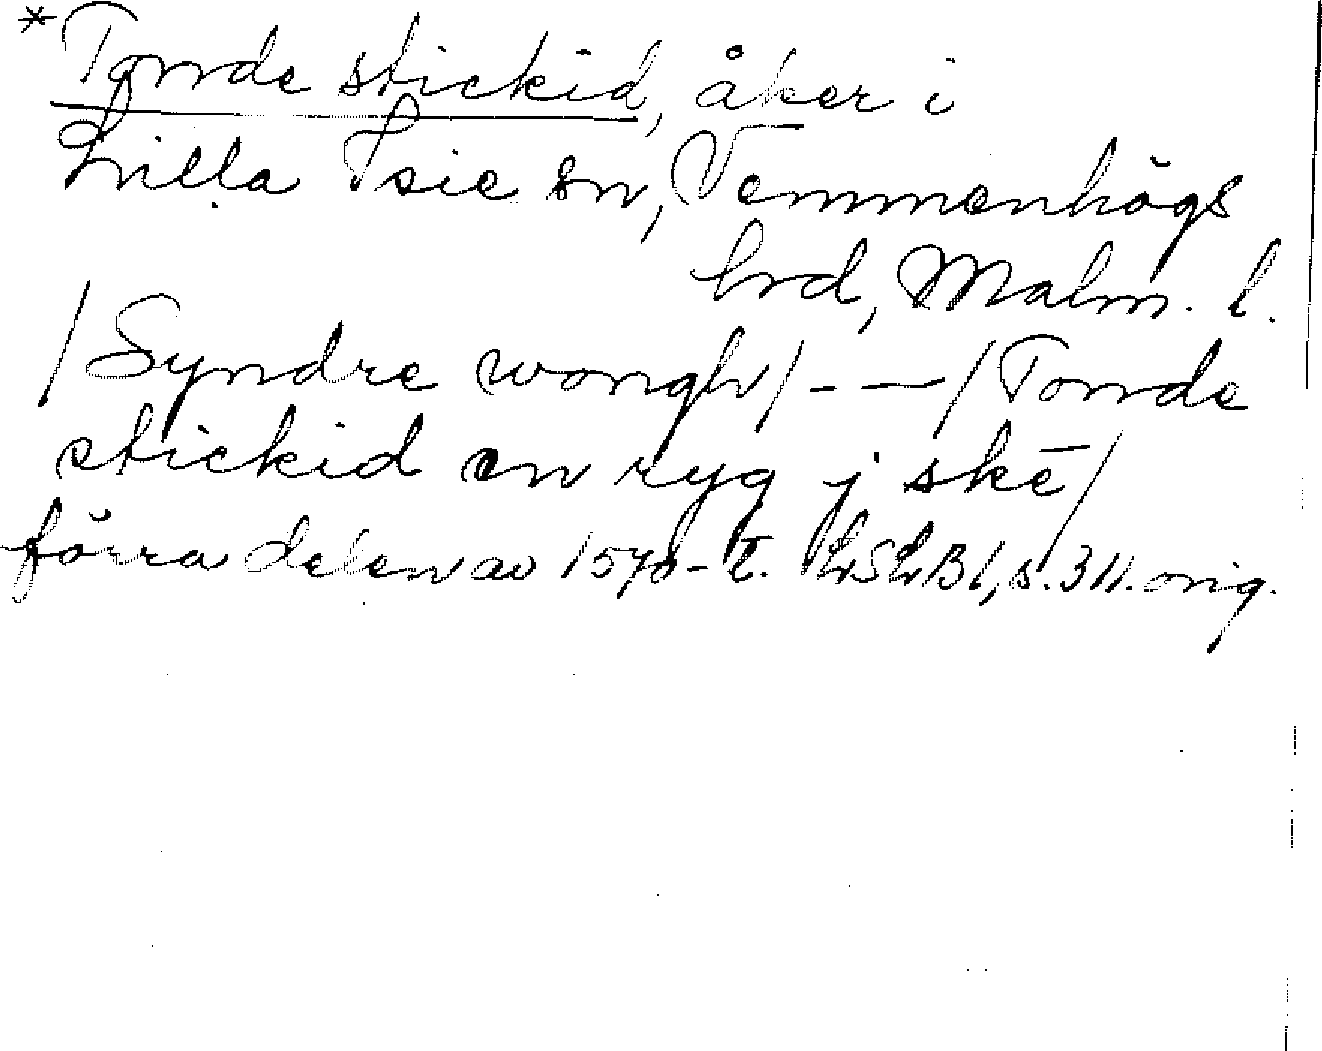 *Tornde stickid, åker i
Lilla Isie sn, Vemmenhögs
hrd, Malm. l.
/Syndre wongh/ - — /Tornde
stickid en ryg j skē/
förra delen av 1570-t. LSLB1, s. 311. orig.